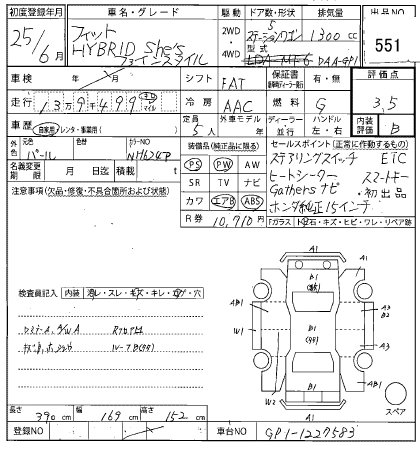 初度登録年月 車名・グレード 駆動 ドア数・形状 排気量 出品NO
25年6月 フィット HYBRID She's 2WD 4WD 5 ステーションワゴン 1300cc 551
型式 DAA-GP1
車検 年 月 シフト FAT 保証書 有・無 評価点
走行 13万9千499キロ マイル 冷房 AAC 燃料 G 3.5
車歴 自家用 レンタ・事業用( ) 定員 5人 外車モデル 年 ディーラー 並行 ハンドル 左・右 内装評価 B
外色 元色 パール カラーNO NH624P 装備品(純正品に限る) セールスポイント(正常に作動するもの)
名義変更期限 月 日迄 積載 t PS PW AW ステアリングスイッチ ETC
注意事項(欠品・修復・不具合箇所および状態) SR TV ナビ ヒートシーター スマートキー
カワ エアB ABS Gathersナビ ・初出品
R券 10,710円 ホンダ純正15インチ
Fガラス 石・キズ・ヒビ・ワレ・リペア跡
検査員記入 内装 ・スレ・キズ・キレ・ ・穴
A1
A1
B1
AB1
A3
B2
W1
B1
A3
AB1
W2
A1
スペア
長さ 390cm 幅 169cm 高さ 152cm
登録NO 車台NO GP1-1227583